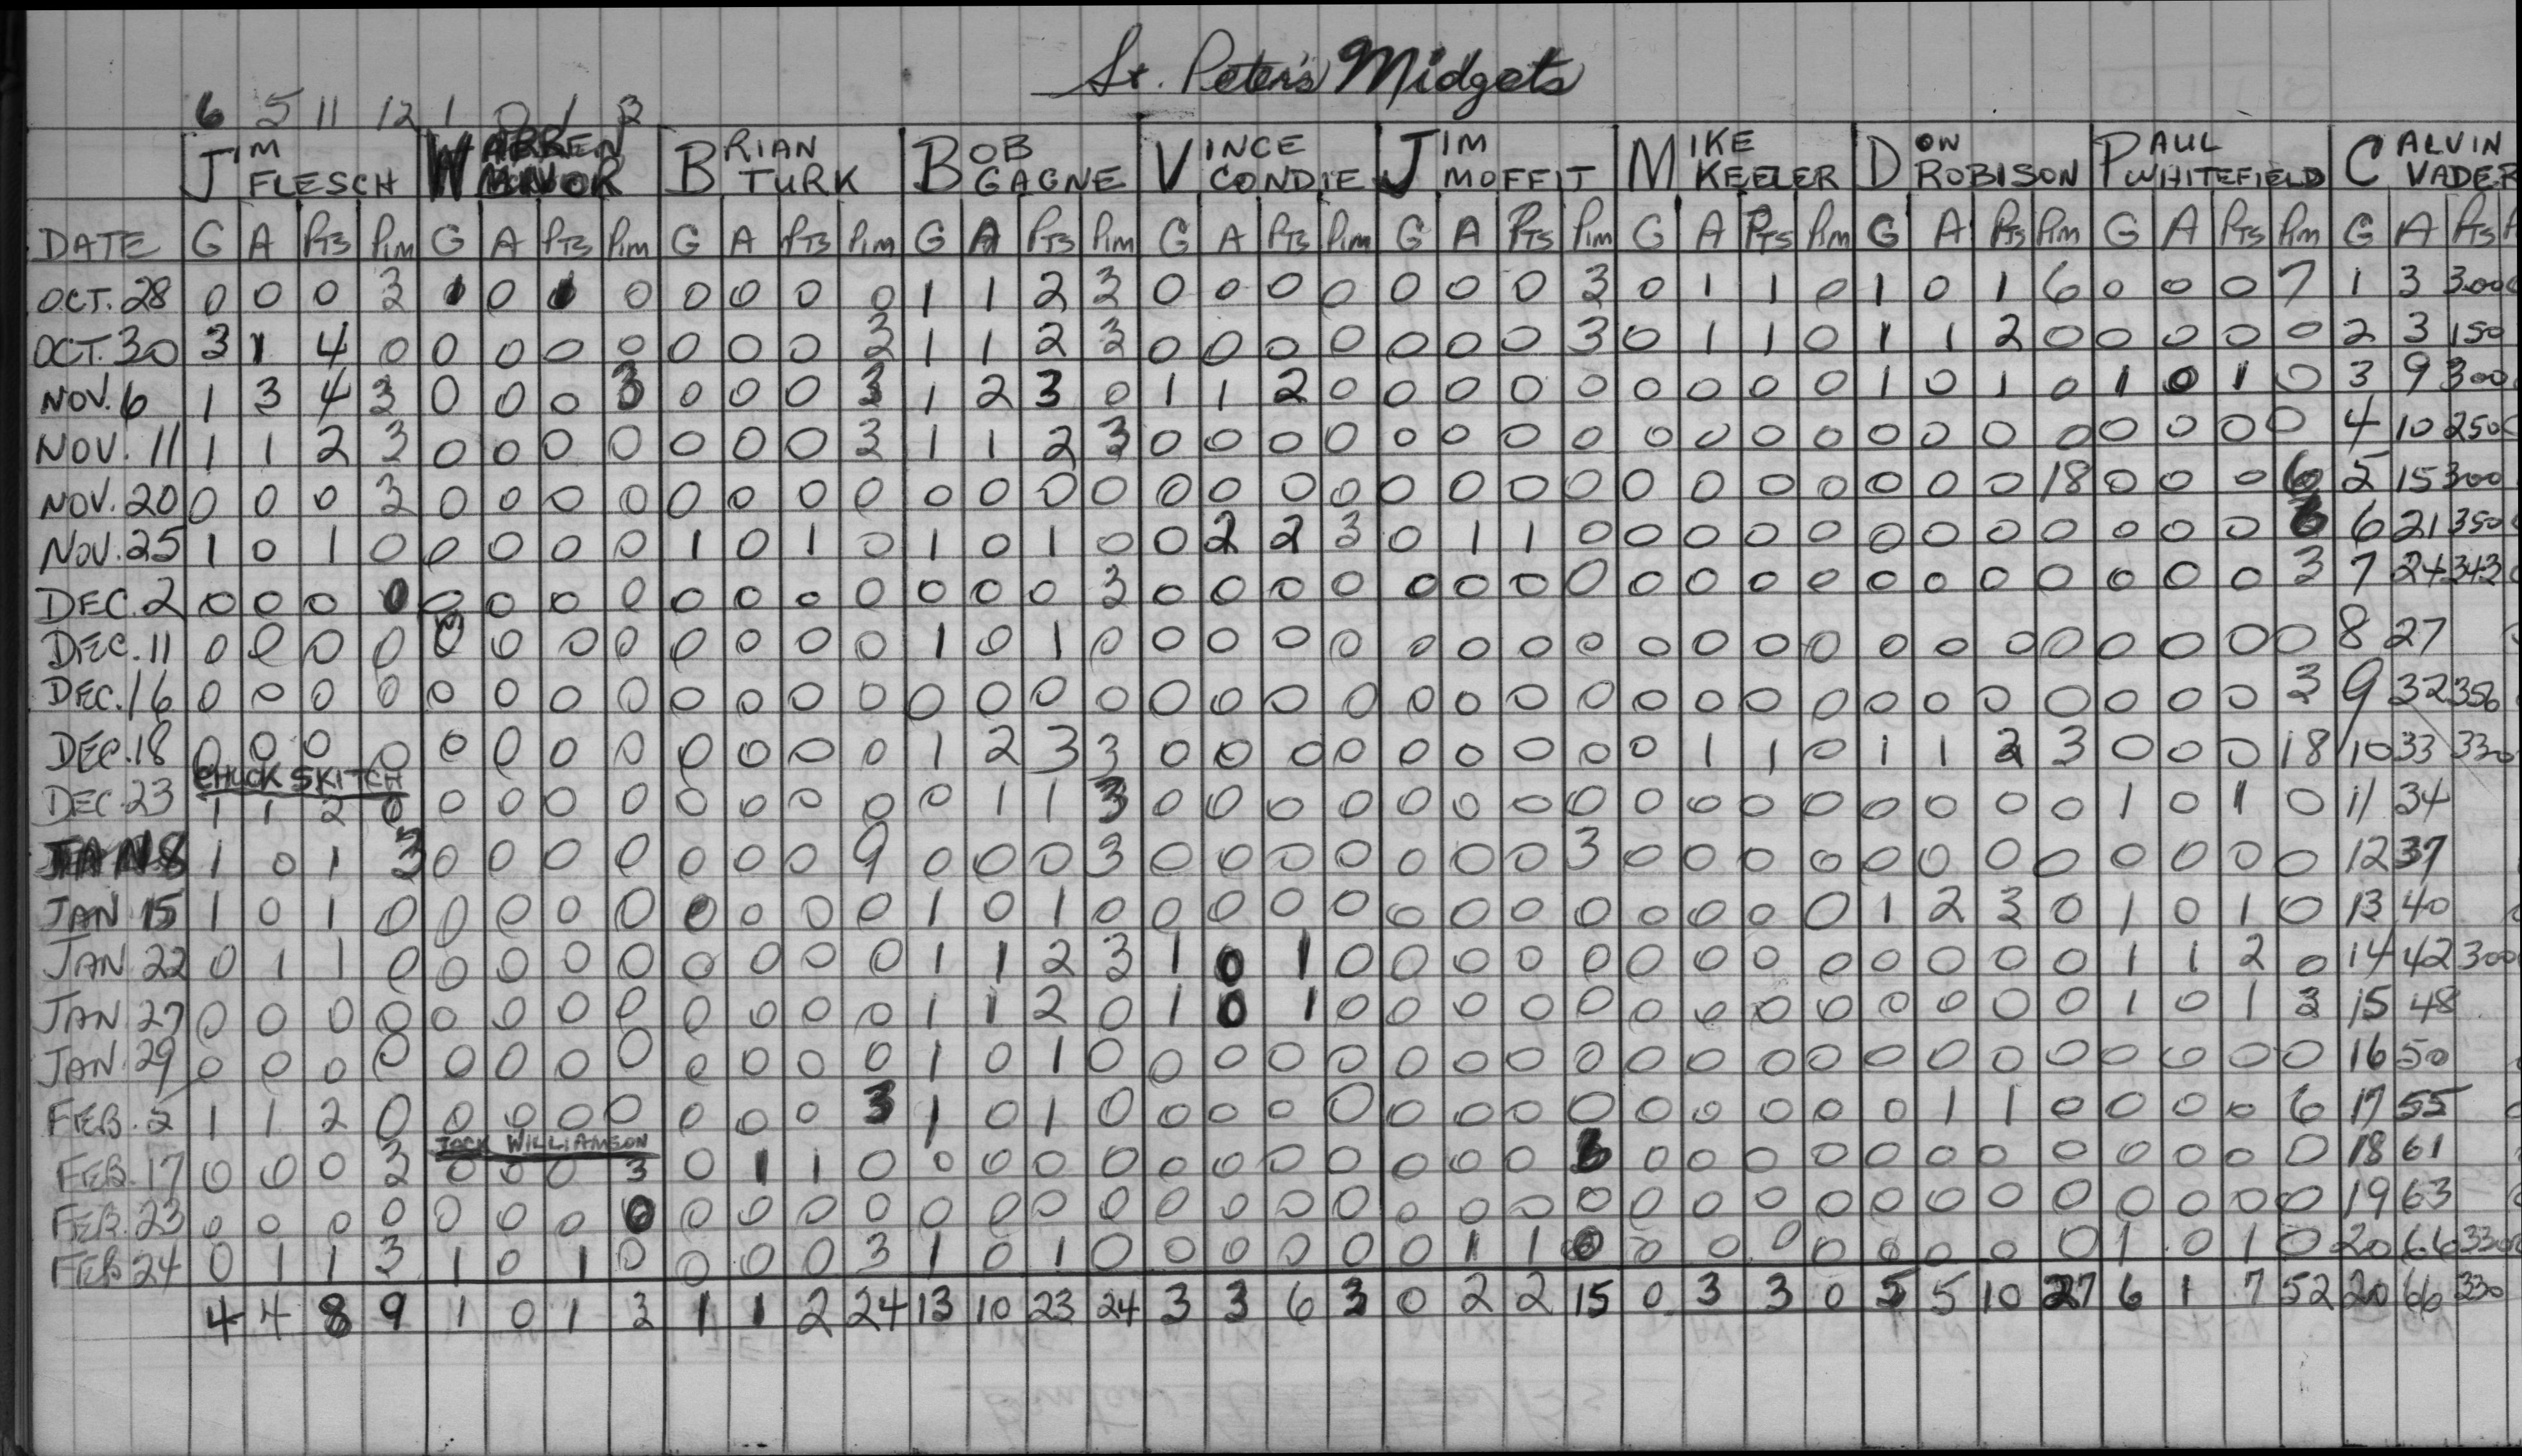 St. Peter's Midgets
6 5 11 12 1 0 1 3
JIM FLESCH WARREN BRIAN TURK BOB GAGNE VINCE CONDIE JIM MOFFIT MIKE KEELER DON ROBISON PAUL WHITEFIELD CALVIN VADER
DATE G A PTS PIM G A PTS PIM G A PTS PIM G A PTS PIM G A PTS PIM G A PTS PIM G A PTS PIM G A PTS PIM G A PTS PIM G A PTS P
OCT. 28 0 0 0 3 1 0 1 0 0 0 0 0 1 1 2 3 0 0 0 0 0 0 0 3 0 1 1 0 1 0 1 6 0 0 0 7 1 3 300
OCT. 30 3 1 4 0 0 0 0 0 0 0 0 3 1 1 2 3 0 0 0 0 0 0 0 3 0 1 1 0 1 1 2 0 0 0 0 0 2 3 150
NOV. 6 1 3 4 3 0 0 0 3 0 0 0 3 1 2 3 0 1 1 2 0 0 0 0 0 0 0 0 0 1 0 1 0 1 0 1 0 3 9 300
NOV. 11 1 1 2 3 0 0 0 0 0 0 0 3 1 1 2 3 0 0 0 0 0 0 0 0 0 0 0 0 0 0 0 0 0 0 0 0 4 10 250
NOV. 20 0 0 0 3 0 0 0 0 0 0 0 0 0 0 0 0 0 0 0 0 0 0 0 0 0 0 0 0 0 0 0 18 0 0 0 6 5 15 300
NOV. 25 1 0 1 0 0 0 0 0 1 0 1 0 1 0 1 0 0 2 2 3 0 1 1 0 0 0 0 0 0 0 0 0 0 0 0 6 21 350
DEC. 2 0 0 0 0 0 0 0 0 0 0 0 0 0 0 0 3 0 0 0 0 0 0 0 0 0 0 0 0 0 0 0 0 0 0 0 3 7 24 343
DEC. 11 0 0 0 0 0 0 0 0 0 0 0 0 1 0 1 0 0 0 0 0 0 0 0 0 0 0 0 0 0 0 0 0 0 0 0 0 8 27
DEC. 16 0 0 0 0 0 0 0 0 0 0 0 0 0 0 0 0 0 0 0 0 0 0 0 0 0 0 0 0 0 0 0 0 0 0 0 3 9 32 356
DEC. 18 0 0 0 0 0 0 0 0 0 0 0 0 1 2 3 3 0 0 0 0 0 0 0 0 0 1 1 0 1 1 2 3 0 0 0 18 10 33 330
CHUCK SKITCH
DEC. 23 1 1 2 0 0 0 0 0 0 0 0 0 0 1 1 3 0 0 0 0 0 0 0 0 0 0 0 0 0 0 0 0 1 0 1 0 11 34
JAN 8 1 0 1 3 0 0 0 0 0 0 0 9 0 0 0 3 0 0 0 0 0 0 0 3 0 0 0 0 0 0 0 0 0 0 0 0 12 37
JAN 15 1 0 1 0 0 0 0 0 0 0 0 0 1 0 1 0 0 0 0 0 0 0 0 0 0 0 0 0 1 2 3 0 1 0 1 0 13 40
JAN 22 0 1 1 0 0 0 0 0 0 0 0 0 1 1 2 3 1 0 1 0 0 0 0 0 0 0 0 0 0 0 0 0 1 1 2 0 14 42 300
JAN 27 0 0 0 0 0 0 0 0 0 0 0 0 1 1 2 0 1 0 1 0 0 0 0 0 0 0 0 0 0 0 0 0 1 0 1 3 15 48
JAN. 29 0 0 0 0 0 0 0 0 0 0 0 0 1 0 1 0 0 0 0 0 0 0 0 0 0 0 0 0 0 0 0 0 0 0 0 0 16 50
FEB. 5 1 1 2 0 0 0 0 0 0 0 0 3 1 0 1 0 0 0 0 0 0 0 0 0 0 0 0 0 0 1 1 0 0 0 0 6 17 55
JACK WILLIAMSON
FEB. 17 0 0 0 3 0 0 0 3 0 1 1 0 0 0 0 0 0 0 0 0 0 0 0 0 0 0 0 0 0 0 0 0 0 0 0 18 61
FEB. 23 0 0 0 0 0 0 0 0 0 0 0 0 0 0 0 0 0 0 0 0 0 0 0 0 0 0 0 0 0 0 0 0 0 0 0 0 19 63
FEB 24 0 1 1 3 1 0 1 0 0 0 0 3 1 0 1 0 0 0 0 0 0 1 1 0 0 0 0 0 0 0 0 0 1 0 1 0 20 66 330
4 4 8 9 1 0 1 3 1 1 2 24 13 10 23 24 3 3 6 3 0 2 2 15 0 3 3 0 5 5 10 27 6 1 7 52 20 66 330